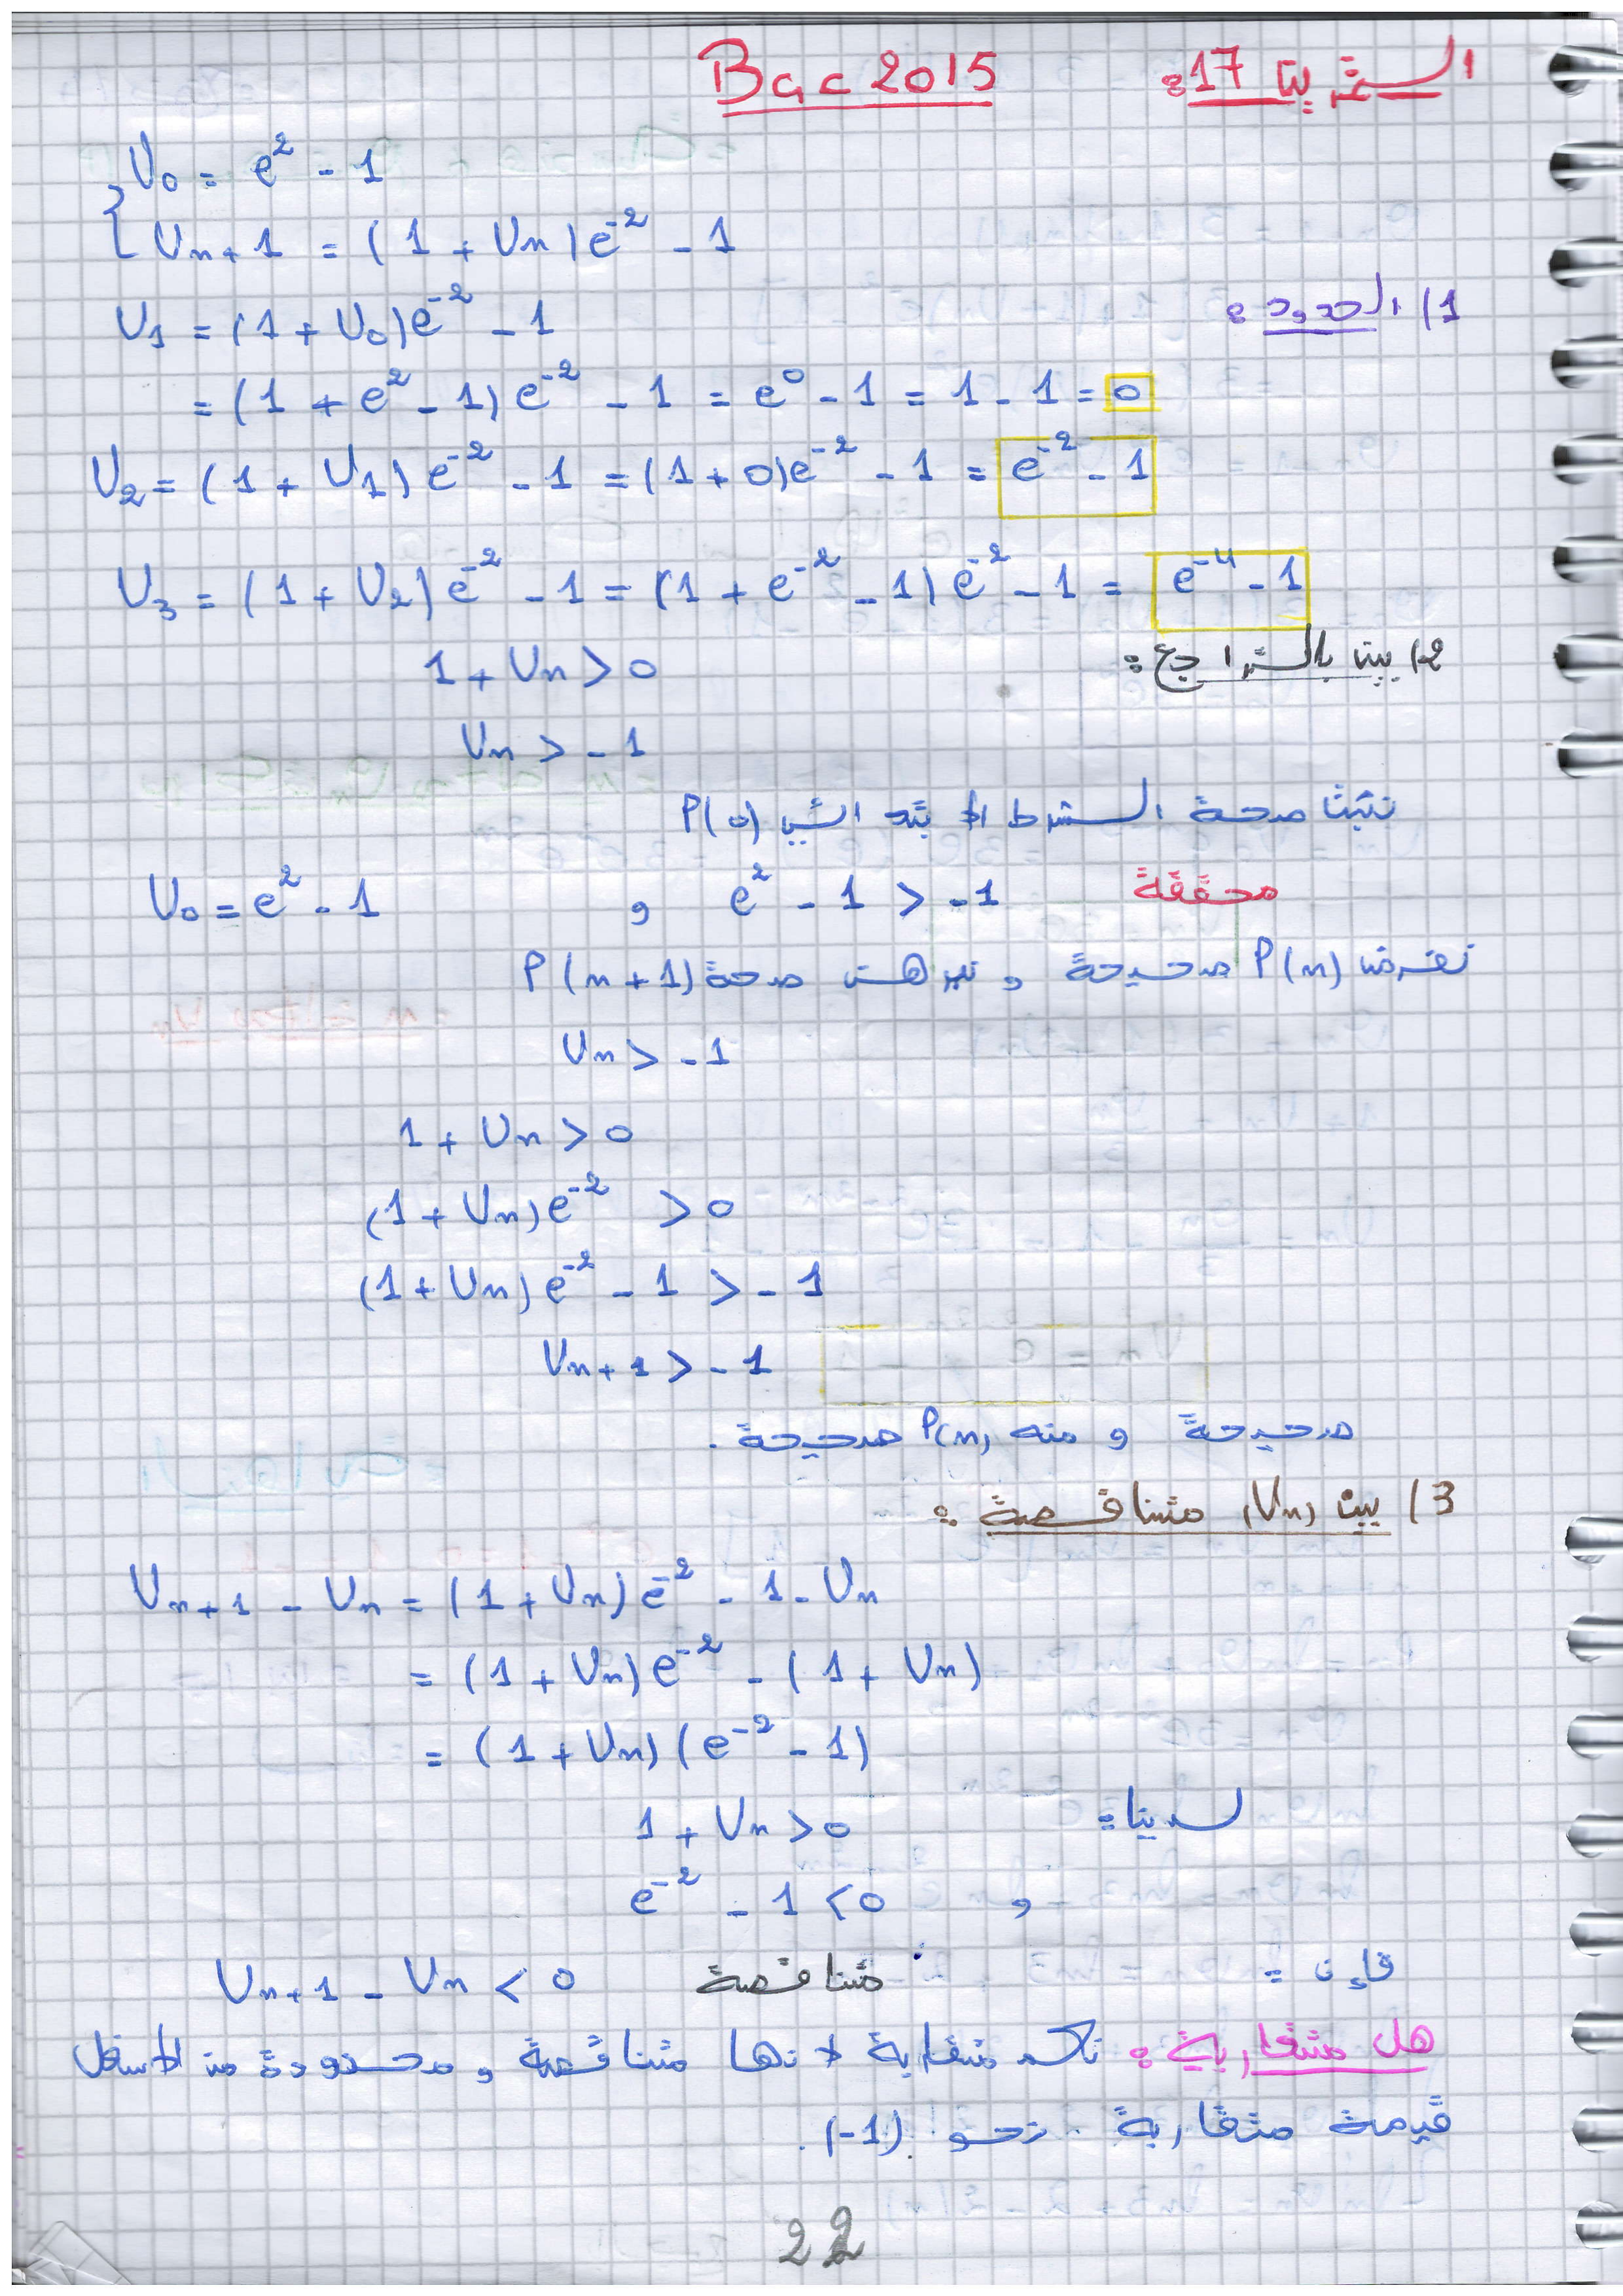 التمرين 17: Bac 2015
U0 = e² - 1
Un+1 = (1 + Un)e⁻² - 1
1/ الحدود:
U1 = (1 + U0)e⁻² - 1
= (1 + e² - 1)e⁻² - 1 = e⁰ - 1 = 1 - 1 = 0
U2 = (1 + U1)e⁻² - 1 = (1 + 0)e⁻² - 1 = e⁻² - 1
U3 = (1 + U2)e⁻² - 1 = (1 + e⁻² - 1)e⁻² - 1 = e⁻⁴ - 1
2/ بين بالتراجع:
1 + Un > 0
Un > -1
نثبت صحة الشرط الابتدائي P(0)
U0 = e² - 1 و e² - 1 > -1 محققة
نفرض P(n) صحيحة و نبرهن صحة P(n+1)
Un > -1
1 + Un > 0
(1 + Un)e⁻² > 0
(1 + Un)e⁻² - 1 > -1
Un+1 > -1
صحيحة و منه P(n) صحيحة.
3/ بين (Un) متناقصة:
Un+1 - Un = (1 + Un)e⁻² - 1 - Un
= (1 + Un)e⁻² - (1 + Un)
= (1 + Un)(e⁻² - 1)
لدينا: 1 + Un > 0
و e⁻² - 1 < 0
فإن: Un+1 - Un < 0 متناقصة
هل متقاربة: متقاربة لانها متناقصة و محدودة من الاسفل
قيمة متقاربة نحو (-1).
22